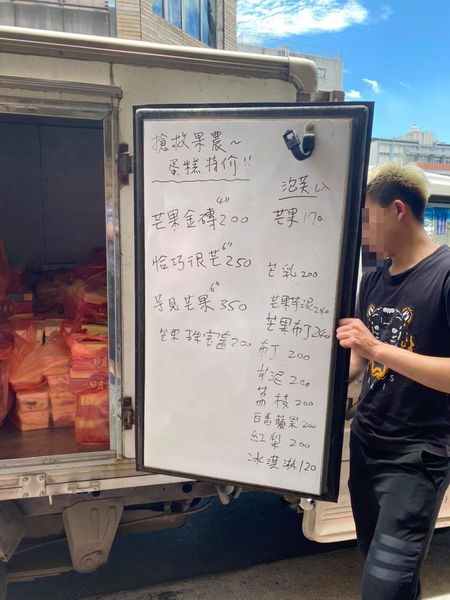 搶救果農～
蛋糕特价!!
芒果金磚4"200
恰巧很芒6"250
芋見芒果6"350
芒果珠宝盒200
泡芙
芒果170
芒乳200
芒果芋泥240
芒果布丁240
布丁200
芋泥200
荔枝200
百香蘋果200
紅梨200
冰淇淋120